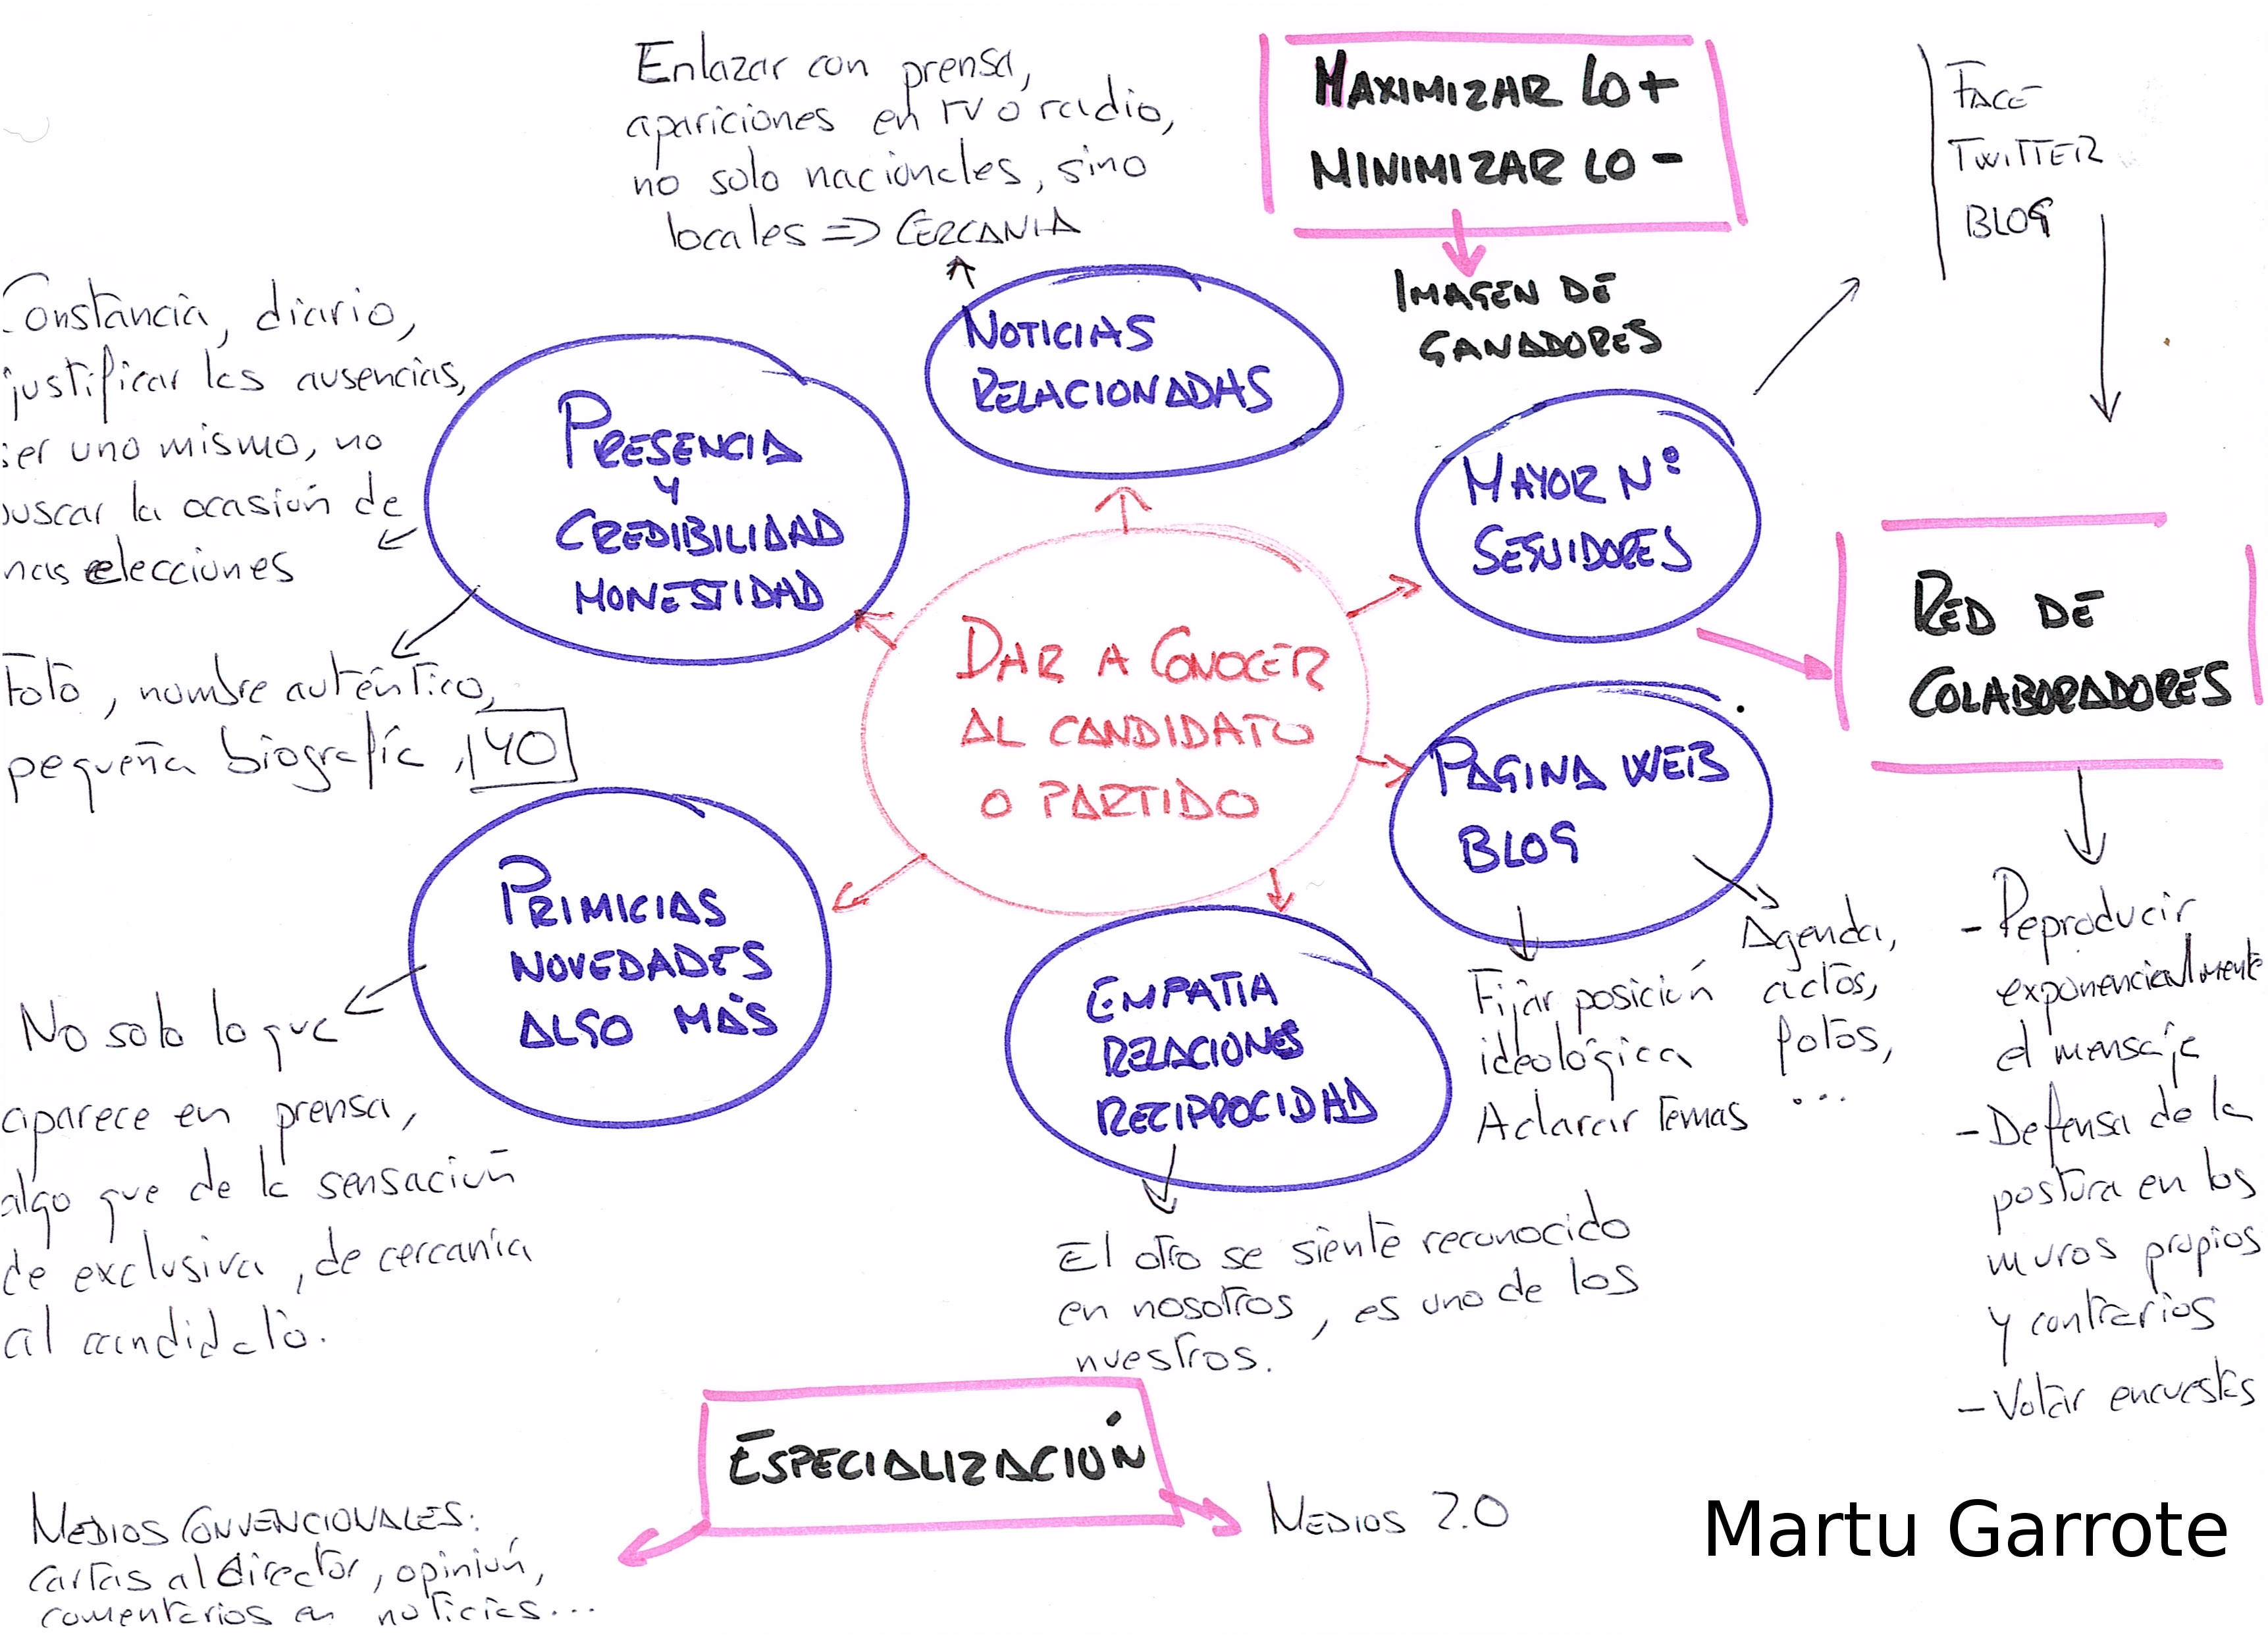 Enlazar con prensa,
apariciones en TV o radio,
no solo nacionales, sino
locales => CERCANIA
MAXIMIZAR LO +
MINIMIZAR LO -
IMAGEN DE
GANADORES
FACE
TWITTER
BLOG
Constancia, diario,
justificar las ausencias,
ser uno mismo, no
buscar la ocasión de
elecciones
NOTICIAS
RELACIONADAS
PRESENCIA
Y
CREDIBILIDAD
HONESTIDAD
MAYOR Nº
SEGUIDORES
Foto, nombre auténtico,
pequeña biografía, 140
DAR A CONOCER
AL CANDIDATO
O PARTIDO
RED DE
COLABORADORES
PAGINA WEB
BLOG
PRIMICIAS
NOVEDADES
ALGO MÁS
EMPATIA
RELACIONES
RECIPROCIDAD
No solo lo que
aparece en prensa,
algo que de la sensación
de exclusiva, de cercanía
al candidato.
Fijar posición
ideológica
Aclarar temas
Agenda,
actos,
fotos,
...
- Reproducir
exponencialmente
el mensaje
- Defensa de la
postura en los
muros propios
y contrarios
- Votar encuestas
El otro se siente reconocido
en nosotros, es uno de los
nuestros.
ESPECIALIZACIÓN
MEDIOS CONVENCIONALES:
cartas al director, opinión,
comentarios en noticias...
MEDIOS 2.0
Martu Garrote